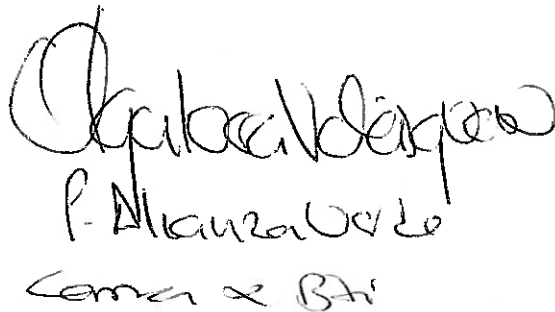 Olga Lucía Velásquez
P. Alianza Verde
Cámara x Btá